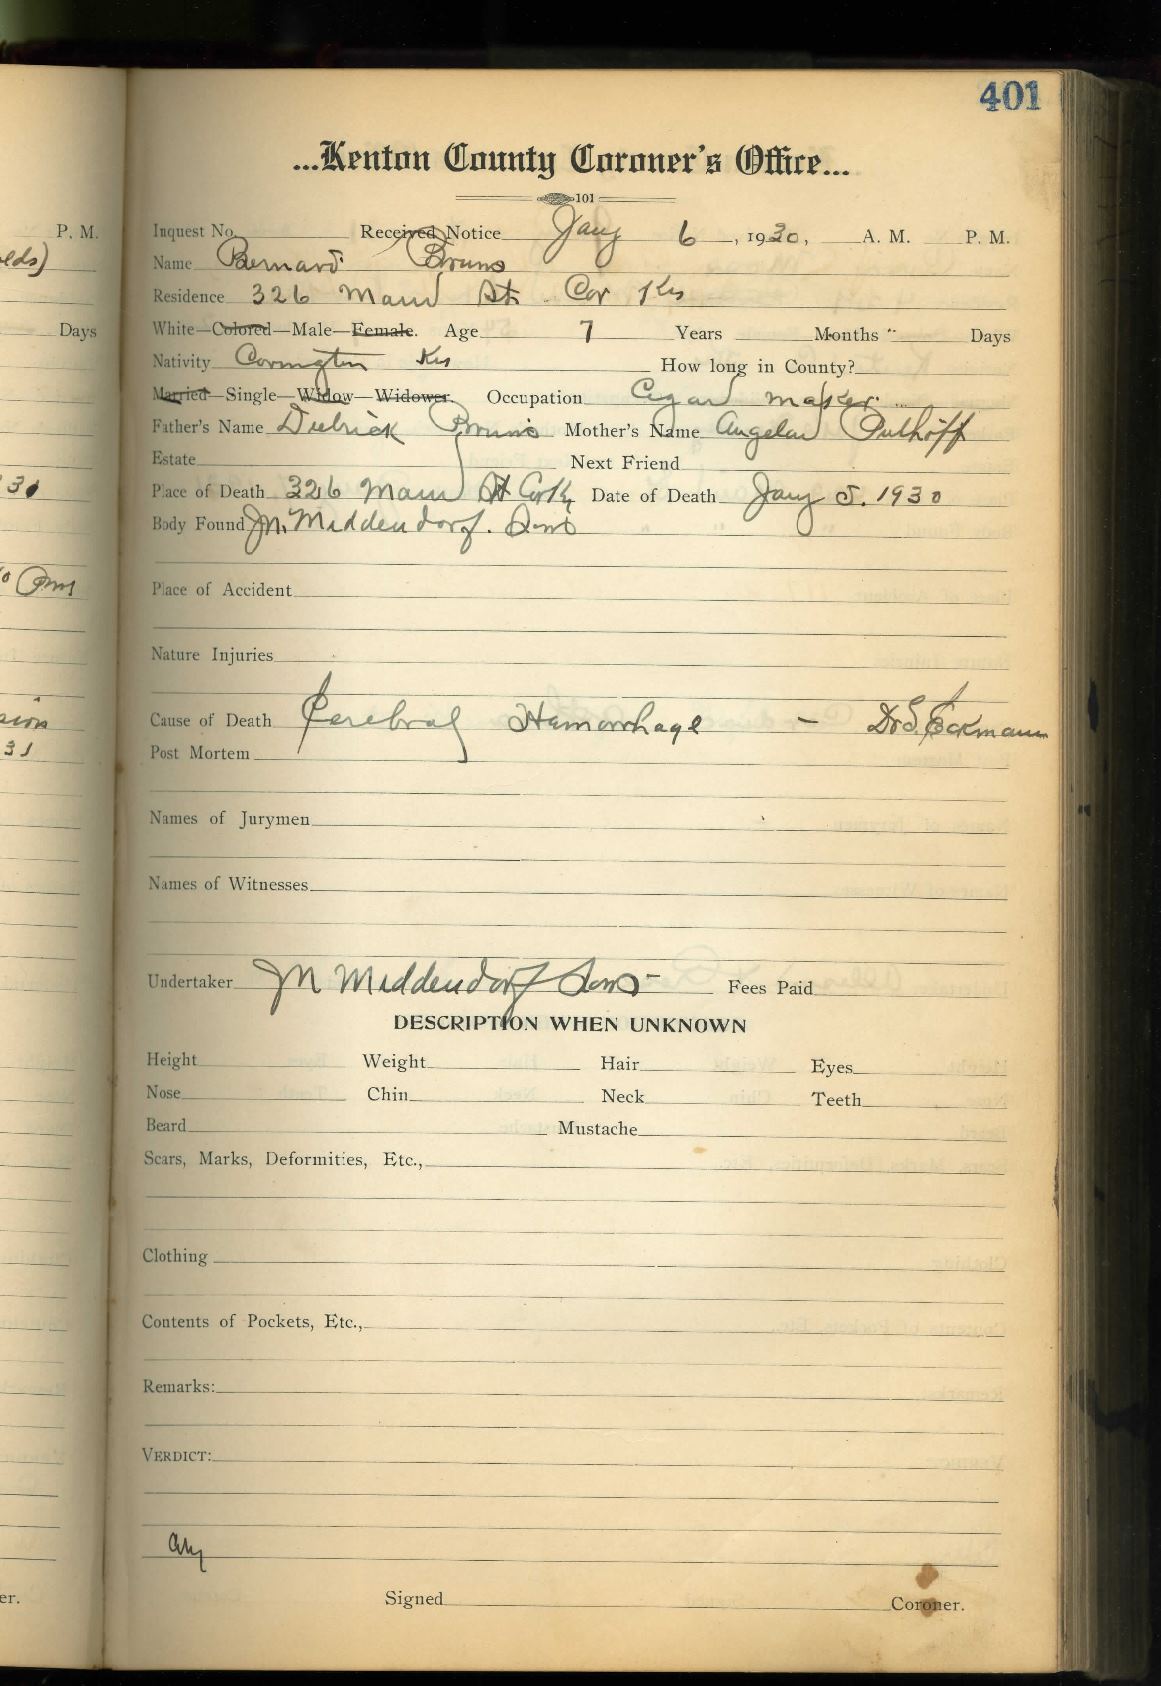 401
...Kenton County Coroner's Office...
101
P. M.
Inquest No. Received Notice Jany 6, 1930, A. M. P. M.
eds)
Name Bernard Bruns
Residence 326 Main St. Cov Ky
Days
White—Colored—Male—Female. Age 7 Years Months " Days
Nativity Covington Ky How long in County?
Married—Single—Widow—Widower. Occupation Cigar maker
Father's Name Diedrick Bruns Mother's Name Angela
Estate Next Friend
30
Place of Death 326 Main St Cov Ky Date of Death Jany 5. 1930
Body Found J.N. Middendorf. Sons
Place of Accident
Nature Injuries
sion
Cause of Death Cerebral Hemorrhage - Dr S. Eckmann
31
Post Mortem
Names of Jurymen
Names of Witnesses
Undertaker JN Middendorf Sons - Fees Paid
DESCRIPTION WHEN UNKNOWN
Height Weight Hair Eyes
Nose Chin Neck Teeth
Beard Mustache
Scars, Marks, Deformities, Etc.,
Clothing
Contents of Pockets, Etc.,
Remarks:
VERDICT:
er.
Signed Coroner.